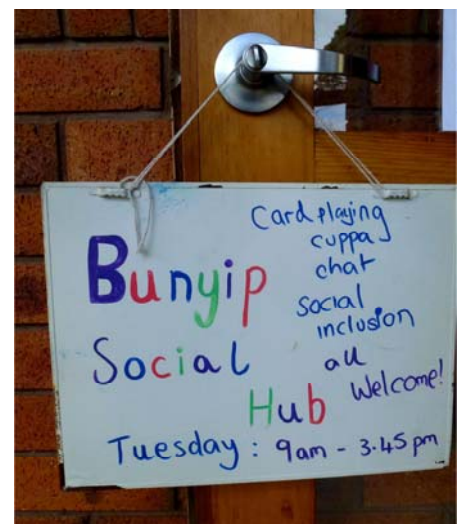 Bunyip
Social
Hub
Card playing
cuppa
chat
social
inclusion
all
Welcome!
Tuesday : 9am - 3.45 pm